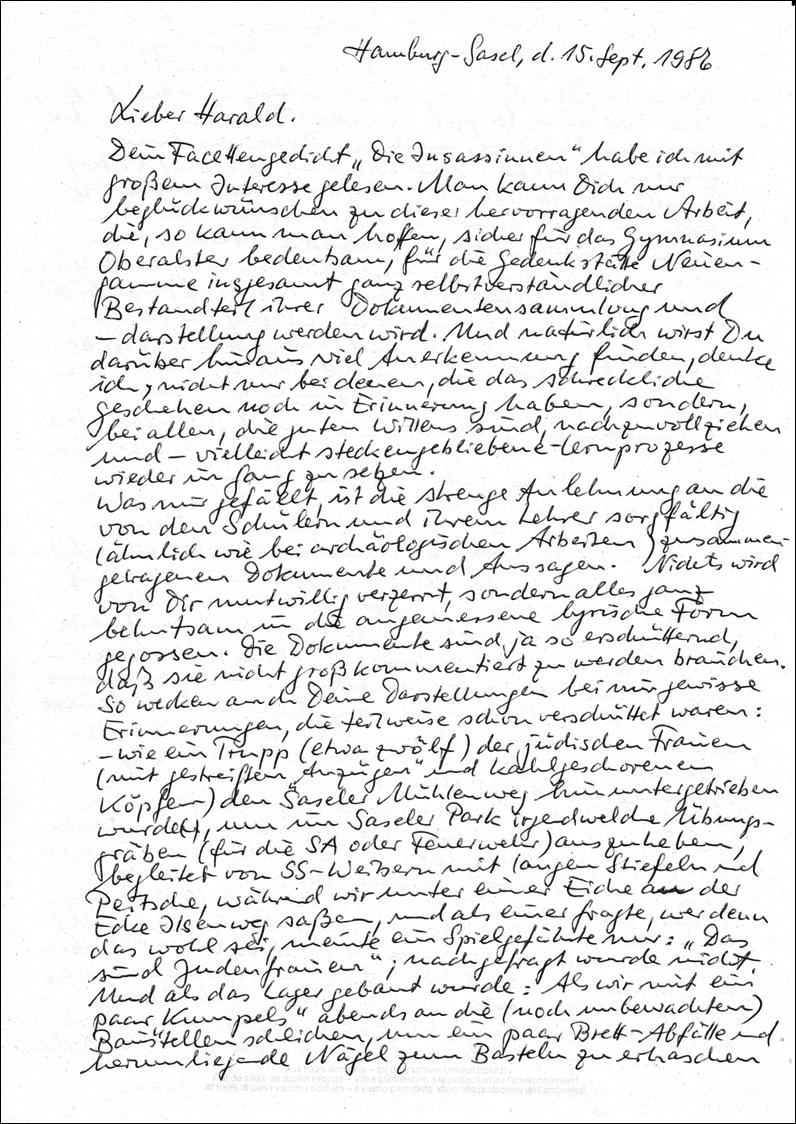 Hamburg-Sasel, d. 15. Sept. 1986
Lieber Harald.
Dein Facettengedicht „Die Insassinnen“ habe ich mit
großem Interesse gelesen. Man kann Dich nur
beglückwünschen zu dieser hervorragenden Arbeit,
die, so kann man hoffen, sicher für das Gymnasium
Oberalster bedeutsam, für die Gedenkstätte Neuen-
gamme insgesamt ganz selbstverständlicher
Bestandteil ihrer Dokumentensammlung und
-darstellung werden wird. Und natürlich wirst Du
darüber hinaus viel Anerkennung finden, denke
ich, nicht nur bei denen, die das schreckliche
geschehen noch in Erinnerung haben, sondern,
bei allen, die guten Willens sind, nachzuvollziehen
und – vielleicht steckengebliebene – Lernprozesse
wieder in Gang zu setzen.
Was mir gefällt, ist die strenge Anlehnung an die
von den Schülern und ihrem Lehrer sorgfältig
(ähnlich wie bei archäologischen Arbeiten) zusammen-
getragenen Dokumente und Aussagen. Nichts wird
von Dir mutwillig verzerrt, sondern alles ganz
behutsam in die angemessene lyrische Form
gegossen. Die Dokumente sind ja so erschütternd,
daß sie nicht groß kommentiert zu werden brauchen.
So wecken auch Deine Darstellungen bei mir gewisse
Erinnerungen, die teilweise schon verschüttet waren:
– wie ein Trupp (etwa zwölf) der jüdischen Frauen
(mit gestreiften „Anzügen“ und kahlgeschorenen
Köpfen) den Saseler Mühlenweg hinuntergetrieben
wurde, um im Saseler Park irgendwelche Übungs-
gräben (für die SA oder Feuerwehr) auszuheben,
begleitet von SS-Weibern mit langen Stiefeln und
Peitsche, während wir unter einer Eiche an der
Ecke Ilsenweg saßen, und als einer fragte, wer denn
das wohl sei, meinte ein Spielgefährte nur: „Das
sind Judenfrauen“; nachgefragt wurde nicht.
Und als das Lager gebaut wurde: Als wir mit ein
paar Kumpels“ abends an die (noch unbewachten)
Baustellen schlichen, um ein paar Brett-Abfälle und
herumliegende Nägel zum Basteln zu erhaschen